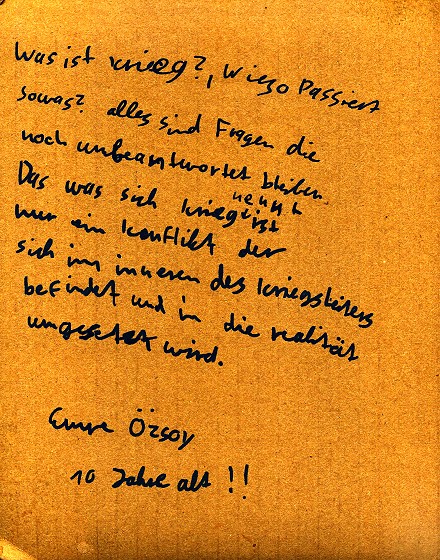 Was ist krieg?, wieso Passiert
sowas? alles sind Fragen die
noch unbeantwortet bleiben.
Das was sich krieg nennt ist
nur ein konflikt der
sich im inneren des kriegsleiters
befindet und in die realität
umgesetzt wird.
Emre Özsoy
10 Jahre alt !!